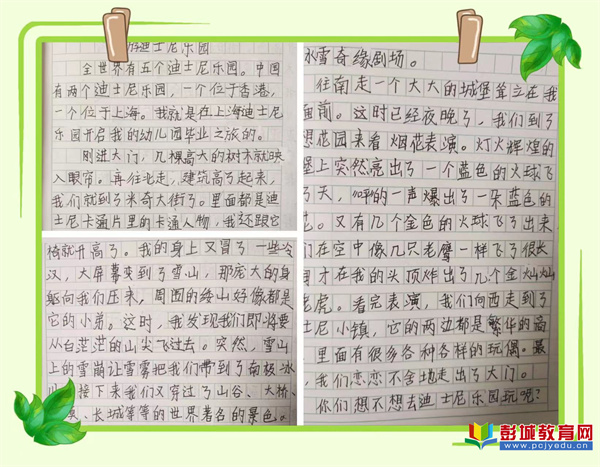 游迪士尼乐园
全世界有五个迪士尼乐园。中国
有两个迪士尼乐园，一个位于香港，
一个位于上海。我就是在上海迪士尼
乐园开启我的幼儿园毕业之旅的。
刚进大门，几棵高大的树木就映
入眼帘。再往北走，建筑高了起来，
我们就到了米奇大街了。里面都是迪
士尼卡通片里的卡通人物，我还跟它
椅就开高了。我的身上又冒了一些冷
汉，大屏幕变到了雪山，那庞大的身
躯向我们压来，周围的矮山好像都是
它的小弟。这时，我发现我们即将要
从白茫茫的山尖飞过去。突然，雪山
上的雪崩让雪雾把我们带到了南极冰
山 接下来我们又穿过了山谷、大桥、
、长城等等的世界著名的景色。
冰雪奇缘剧场。
往南走一个大大的城堡耸立在我
面前。这时已经夜晚了，我们到了
想花园来看烟花表演。灯火辉煌的
堡上突然亮出了一个蓝色的火球飞
了天，呯的一声爆出了一朵蓝色的
花。又有几个金色的火球飞了出来，
们在空中像几只老鹰一样飞了很长
间才在我的头顶炸出了几个金灿灿
老虎。看完表演，我们向西走到了
士尼小镇，它的两边都是繁华的商
，里面有很多各种各样的玩偶。最
，我们恋恋不舍地走出了大门。
你们想不想去迪士尼乐园玩呢？
彭城教育网
www.pcjyedu.cn